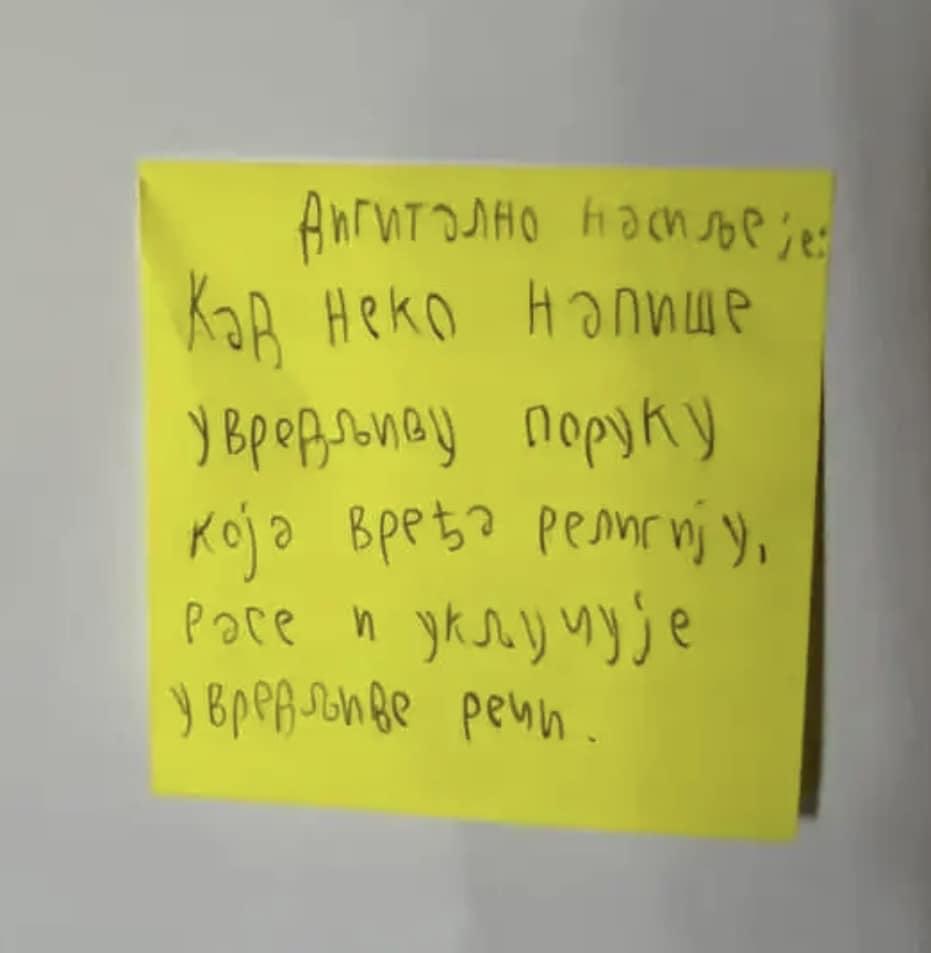 Дигитално насиље је:
Кад неко напише
увредљиву поруку
која вређа религију,
расе и укључује
увредљиве речи.